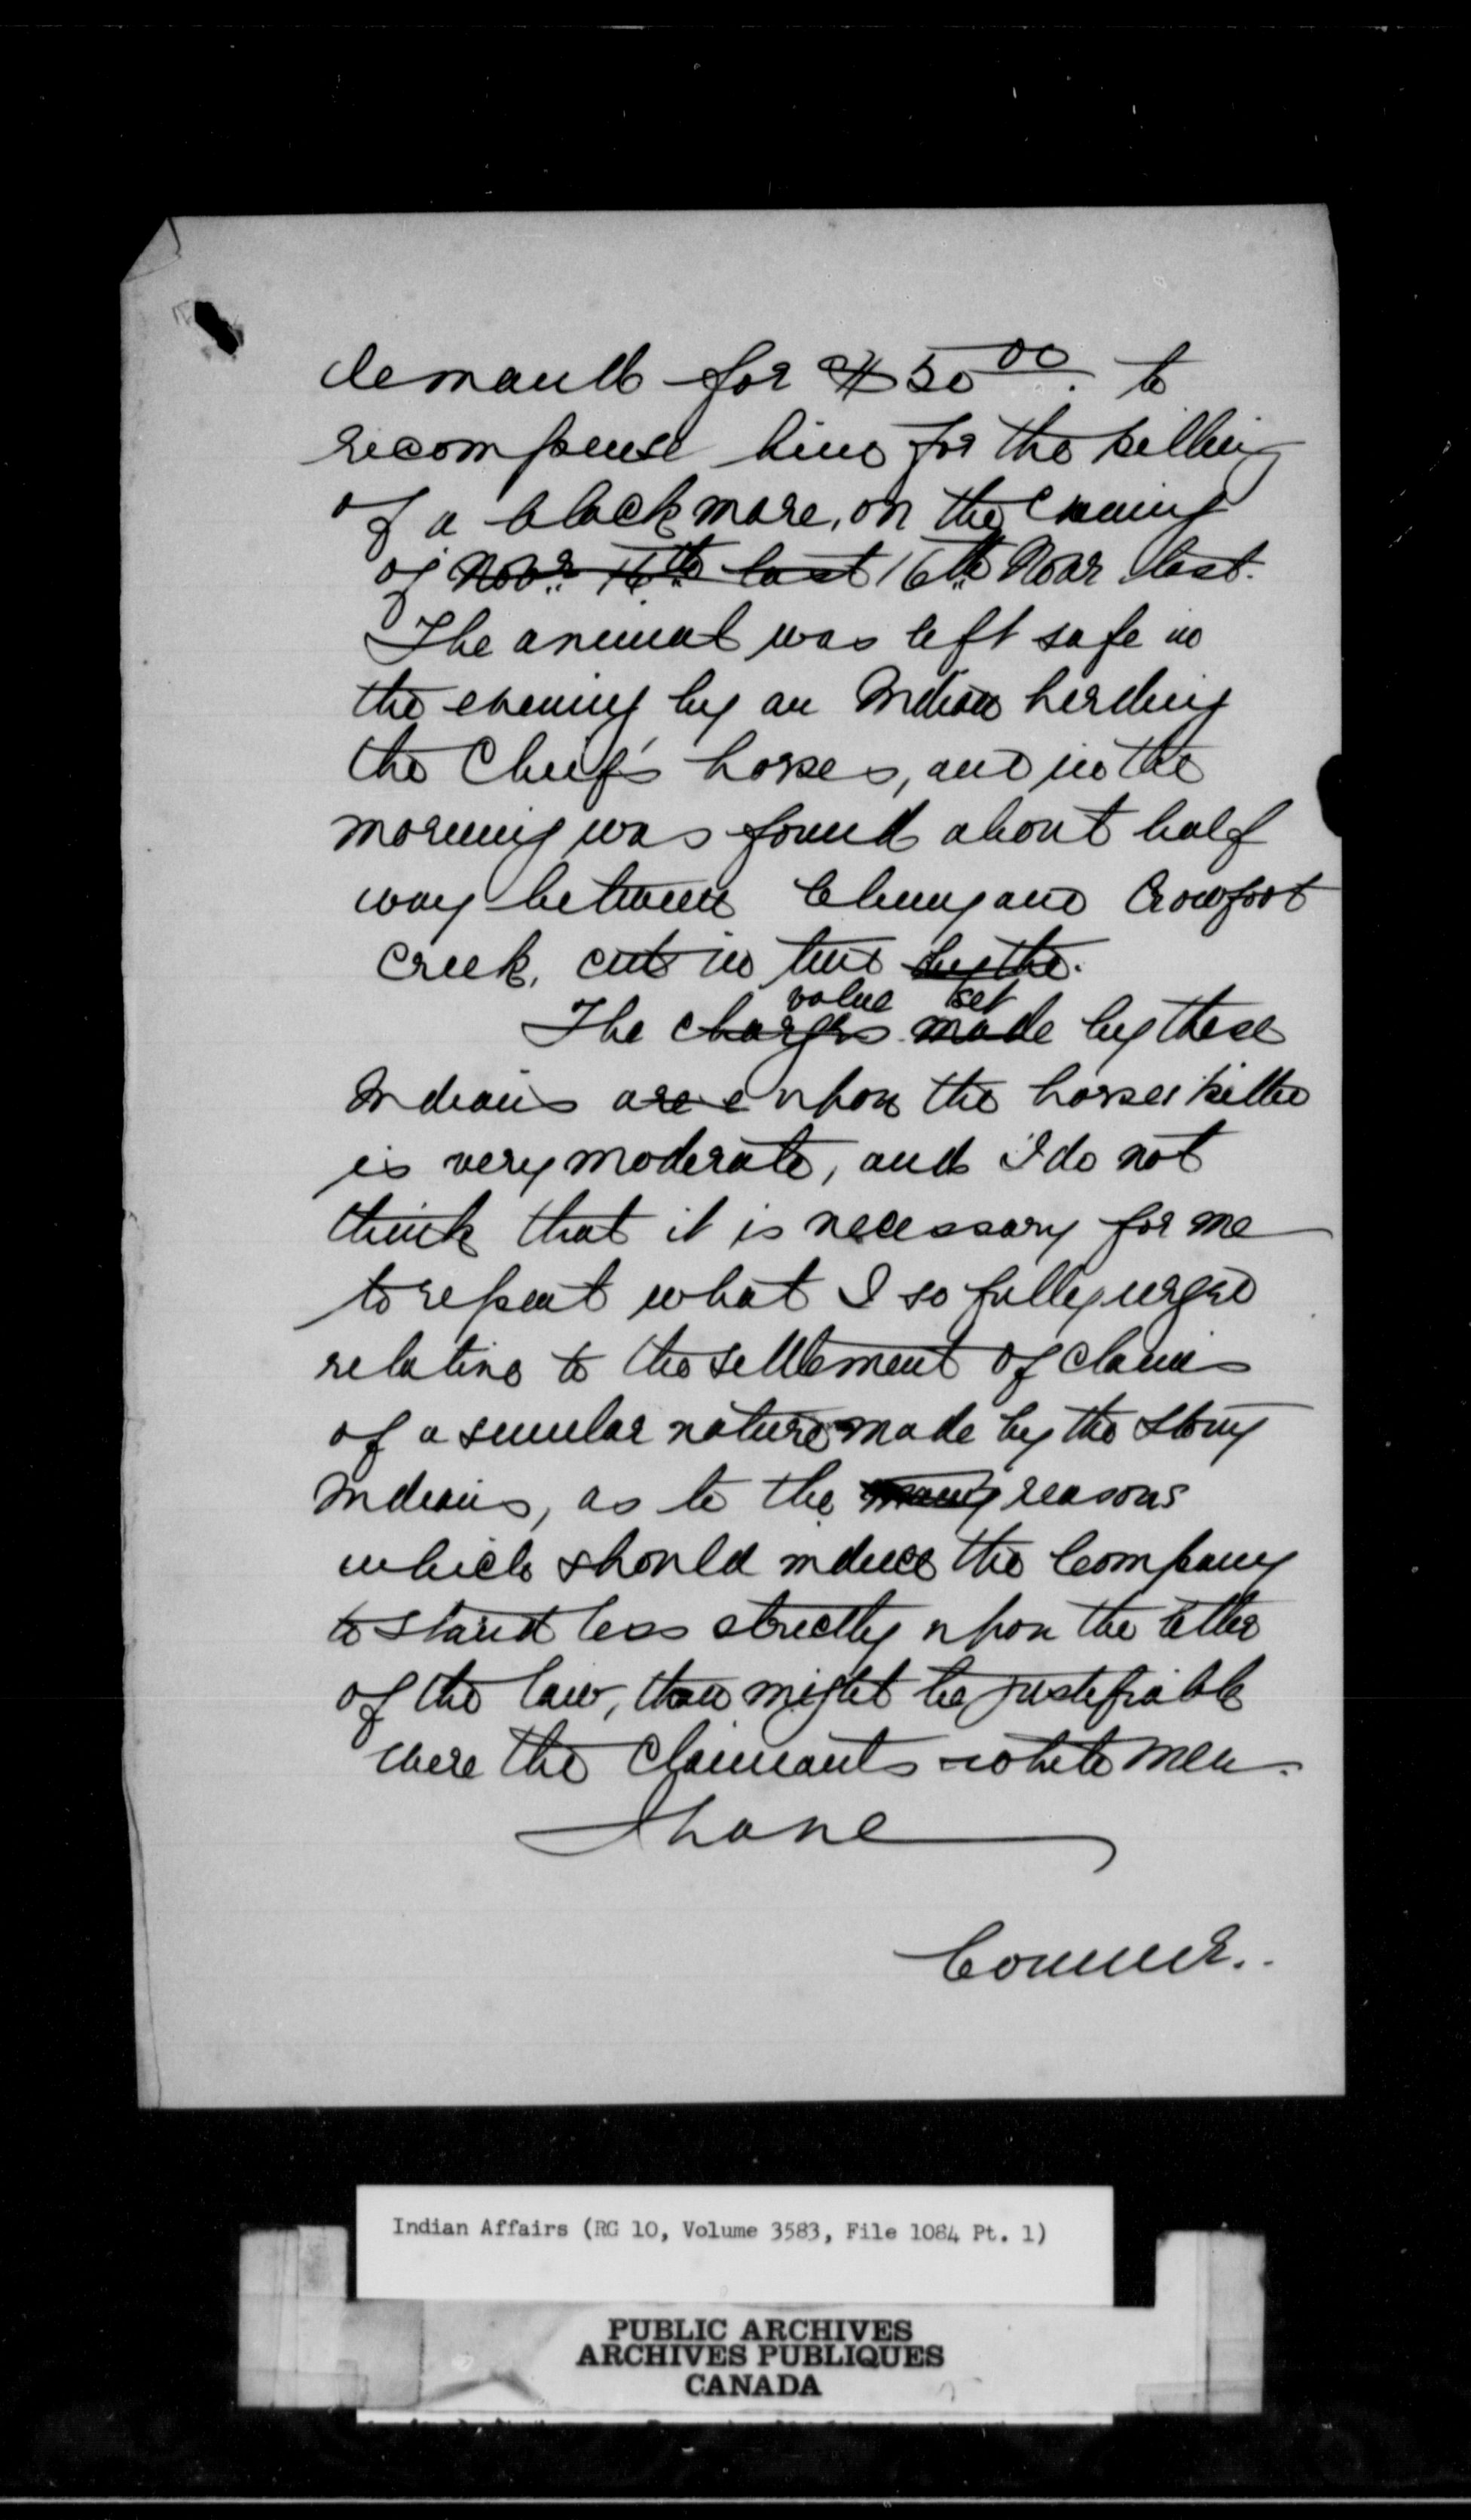 demand for $50.00. to
recompense him for the killing
of a black mare, on the evening
of Novr. 16th last 16th Novr last.
The animal was left safe in
the evening by an Indian herding
the Chief's horses, and in the
morning was found about half
way between Cluny and Crowfoot
Creek, cut in two by the.
value set
The charges made by these
Indians are upon the horses killed
is very moderate, and I do not
think that it is necessary for me
to repeat what I so fully urged
relative to the settlement of claims
of a similar nature made by the Stony
Indians, as to the many reasons
which should induce the Company
to stand less strictly upon the letter
of the law, than might be justifiable
were the Claimants white men.
I have
Commr..
Indian Affairs (RG 10, Volume 3583, File 1084 Pt. 1)
PUBLIC ARCHIVES
ARCHIVES PUBLIQUES
CANADA